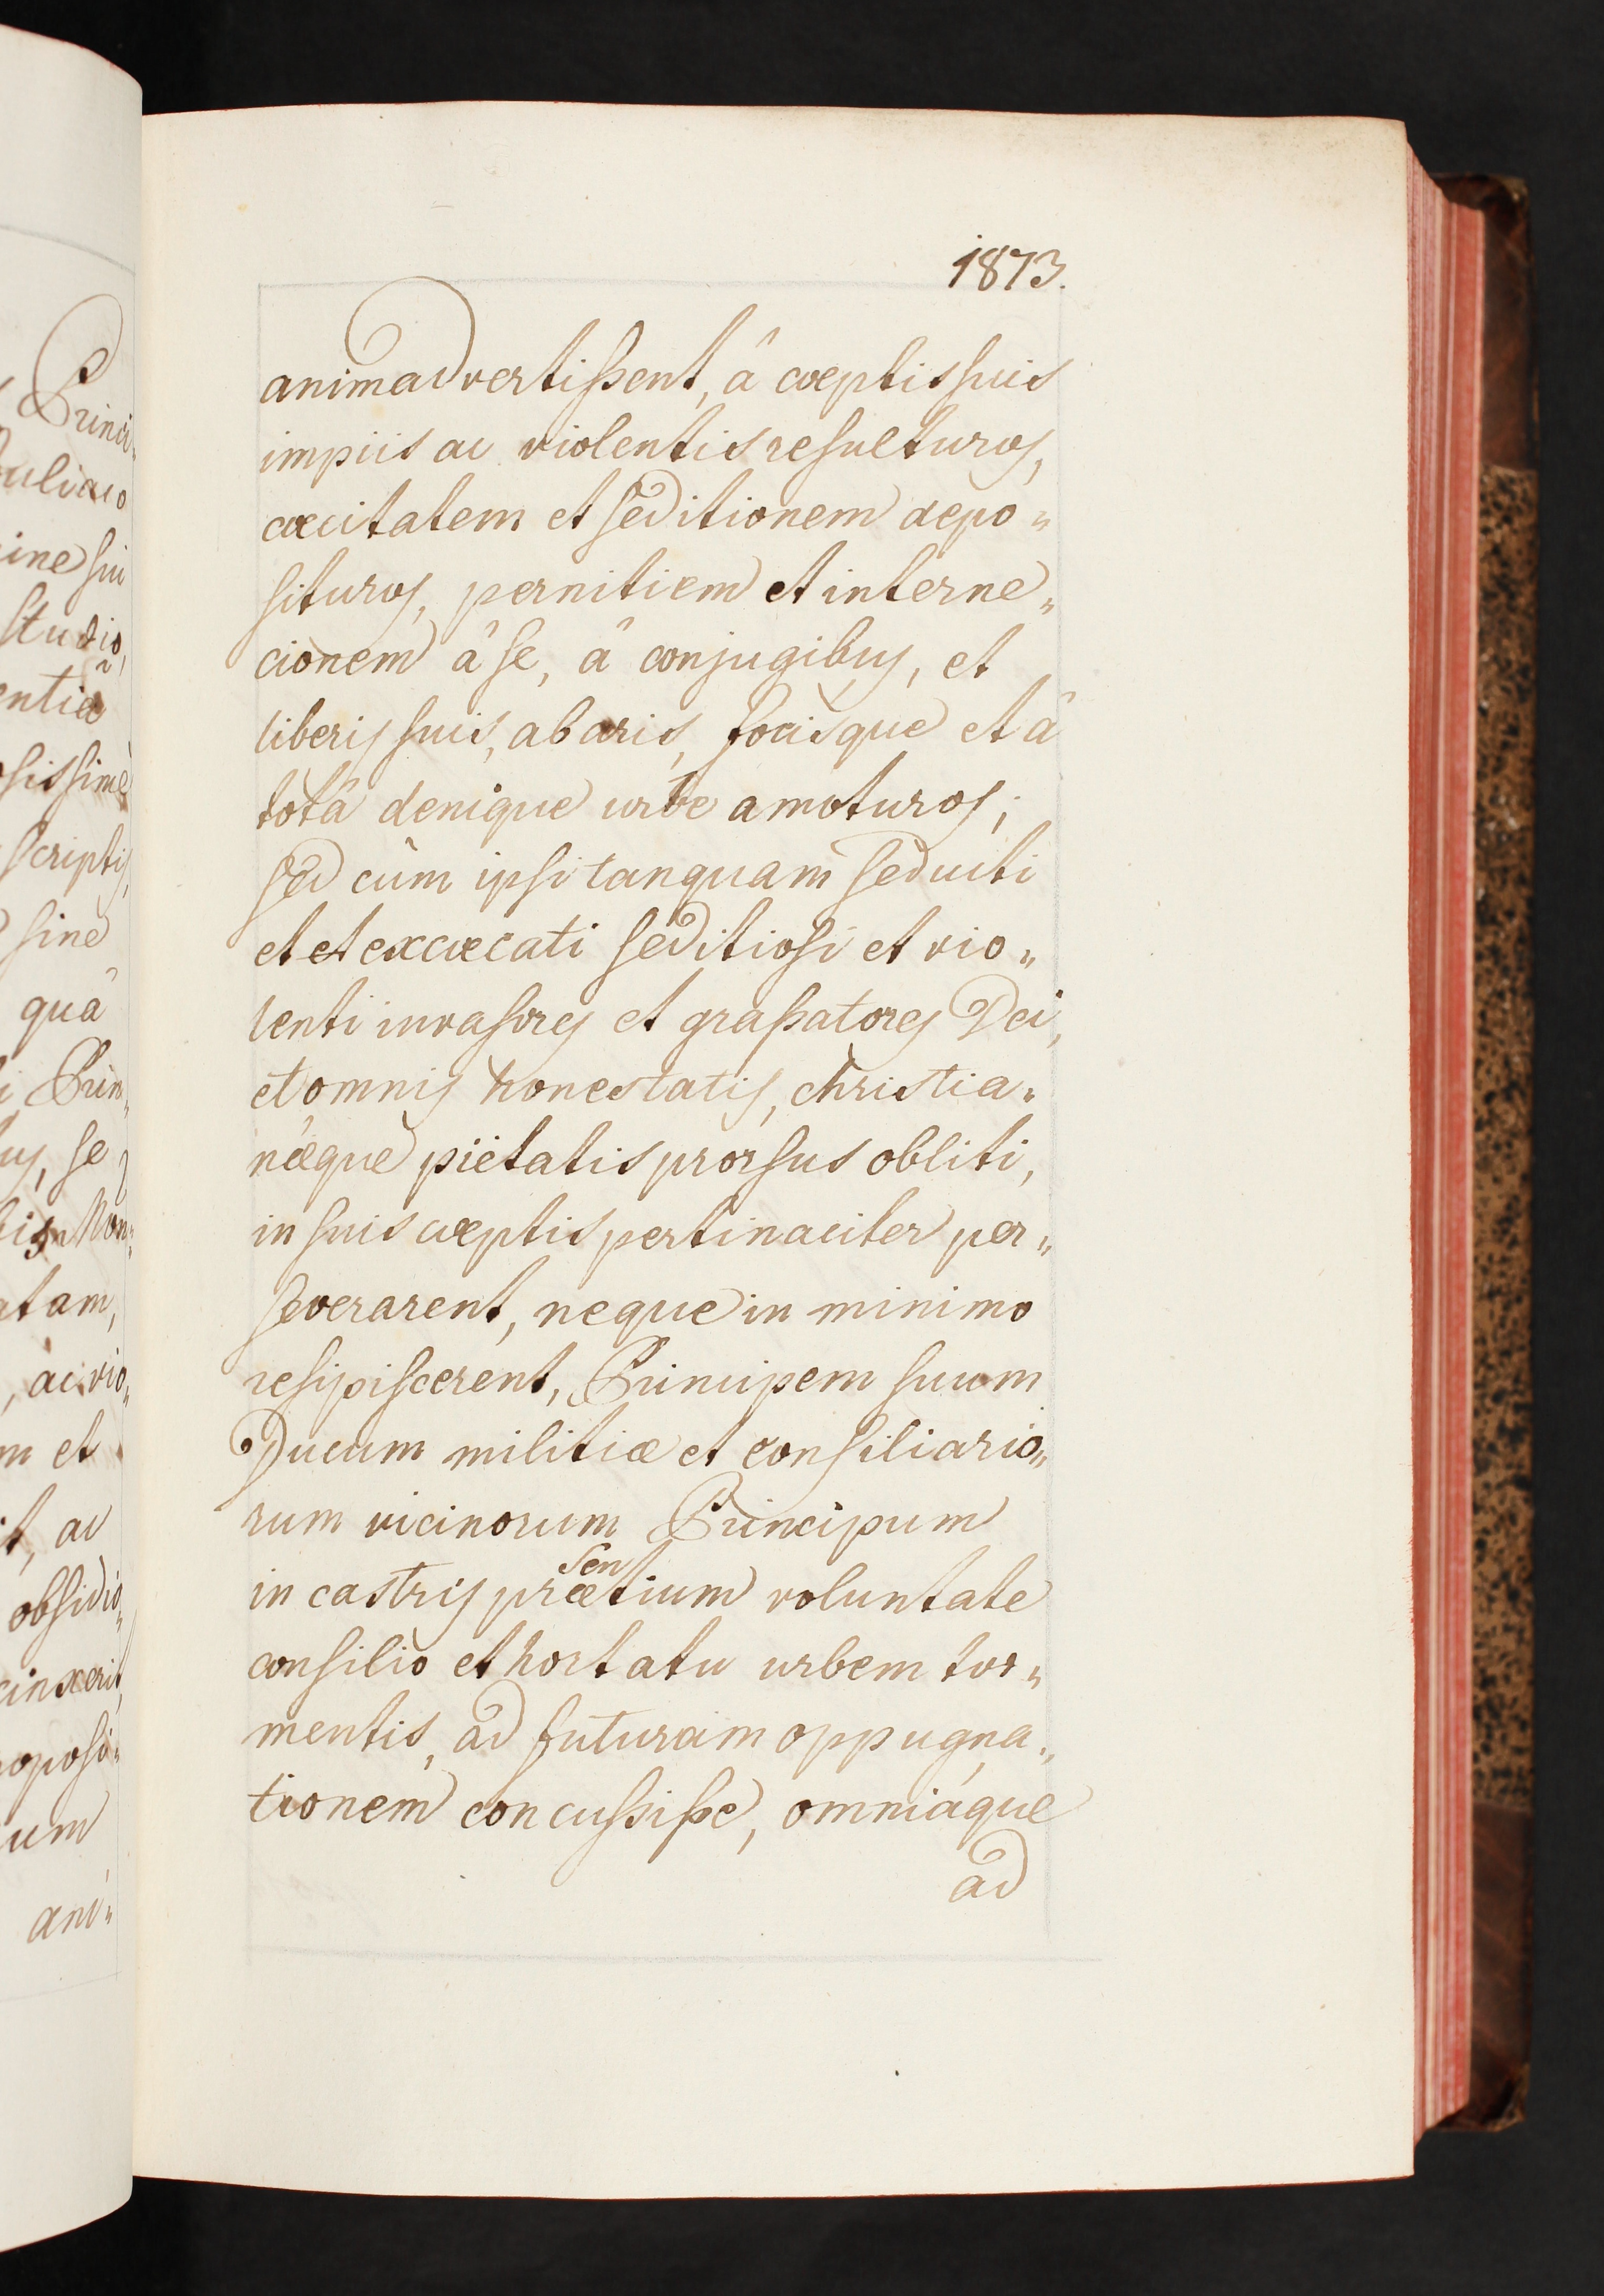 1873.
animadvertissent, â cœptis suis
impiis ac violentis resulturos,
cœcitatem et seditionem depo„
situros, pernitiem et interne„
cionem â se, â conjugibus, et
liberis suis, ab aris, focisque et â
totâ denique urbe amoturos;
sed cùm ipsi tanquam seducti
et et excœcati seditiosi et vio„
lenti invasores et grassatores Dei,
et omnis honestatis, christia„
næque pietatis prorsus obliti,
in suis cœptis pertinaciter per„
severarent, neque in minimo
resipiscerent, Principem suum
Ducum militiæ et consiliario„
rum vicinorum Principum
in castris præsentium voluntate
consilio et hortatu urbem tor„
mentis, ad futuram oppugna„
tionem concussisse, omniáque
ad
Princi„
sui
studio,
scriptis,
sine
quâ
Prin„
se
atam,
ac vio„
et
ac
obsidio„
cinxerit,
um
ani„